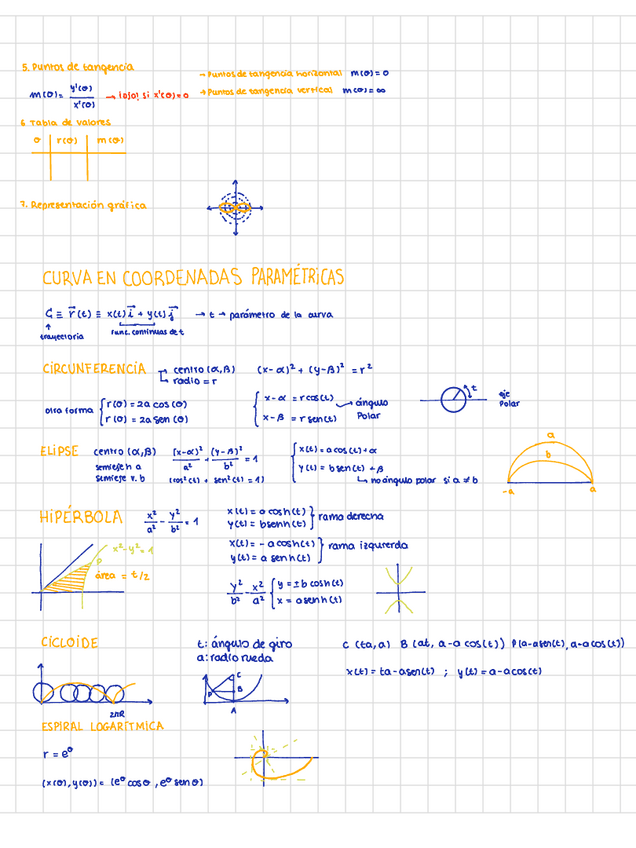 5. Puntos de tangencia
m(θ) = y'(θ) / x'(θ) → ¡ojo! si x'(θ) = 0
→ Puntos de tangencia horizontal m(θ) = 0
→ Puntos de tangencia vertical m(θ) = ∞
6. Tabla de valores
θ | r(θ) | m(θ)
7. Representación gráfica
CURVA EN COORDENADAS PARAMÉTRICAS
C ≡ r⃗(t) ≡ x(t) i⃗ + y(t) j⃗ → t → parámetro de la curva
trayectoria
func. continuas de t
CIRCUNFERENCIA centro (α,β) (x-α)² + (y-β)² = r²
radio = r
otra forma { r(θ) = 2a cos(θ)
r(θ) = 2a sen(θ)
{ x-α = r cos(t)
x-β = r sen(t)
→ ángulo
Polar
t
eje
Polar
ELIPSE centro (α,β) (x-α)²/a² + (y-β)²/b² = 1
semieje h a
semieje v. b (cos²(t) + sen²(t) = 1)
{ x(t) = a cos(t) + α
y(t) = b sen(t) + β
→ no ángulo polar si a ≠ b
a
b
-a a
HIPÉRBOLA x²/a² - y²/b² = 1
x(t) = a cosh(t)
y(t) = b senh(t) } rama derecha
x(t) = - a cosh(t)
y(t) = a senh(t) } rama izquierda
x²-y² = 1
P
área = t/2
y²/b² - x²/a² { y = ±b cosh(t)
x = a senh(t)
CICLOIDE
t: ángulo de giro
a: radio rueda
C (ta, a) B (at, a-a cos(t)) P(a-asen(t), a-a cos(t))
x(t) = ta-asen(t) ; y(t) = a-acos(t)
2πR
C
B
P
A
ESPIRAL LOGARÍTMICA
r = e^θ
(x(θ), y(θ)) = (e^θ cos θ, e^θ sen θ)